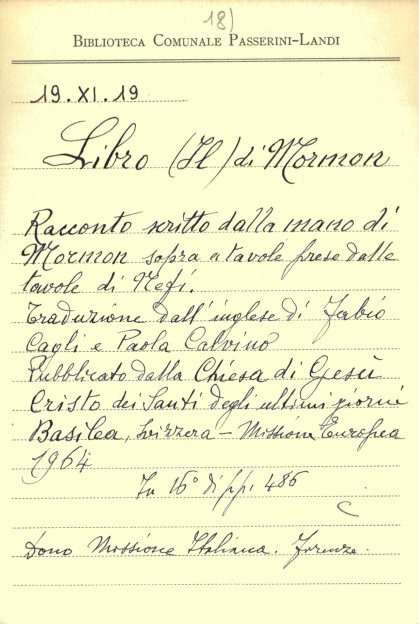 18)
BIBLIOTECA COMUNALE PASSERINI-LANDI
19.XI.19
Libro (Il) di Mormon
Racconto scritto dalla mano di
Mormon sopra a tavole prese dalle
tavole di Nefi.
Traduzione dall'inglese di Fabio
Cagli e Paola Calvino
Pubblicato dalla Chiesa di Gesù
Cristo dei Santi degli ultimi giorni
Basilea, Svizzera - Missione Europea
1964
In 16° di pp. 486
C
Dono Missione Italiana. Firenze.